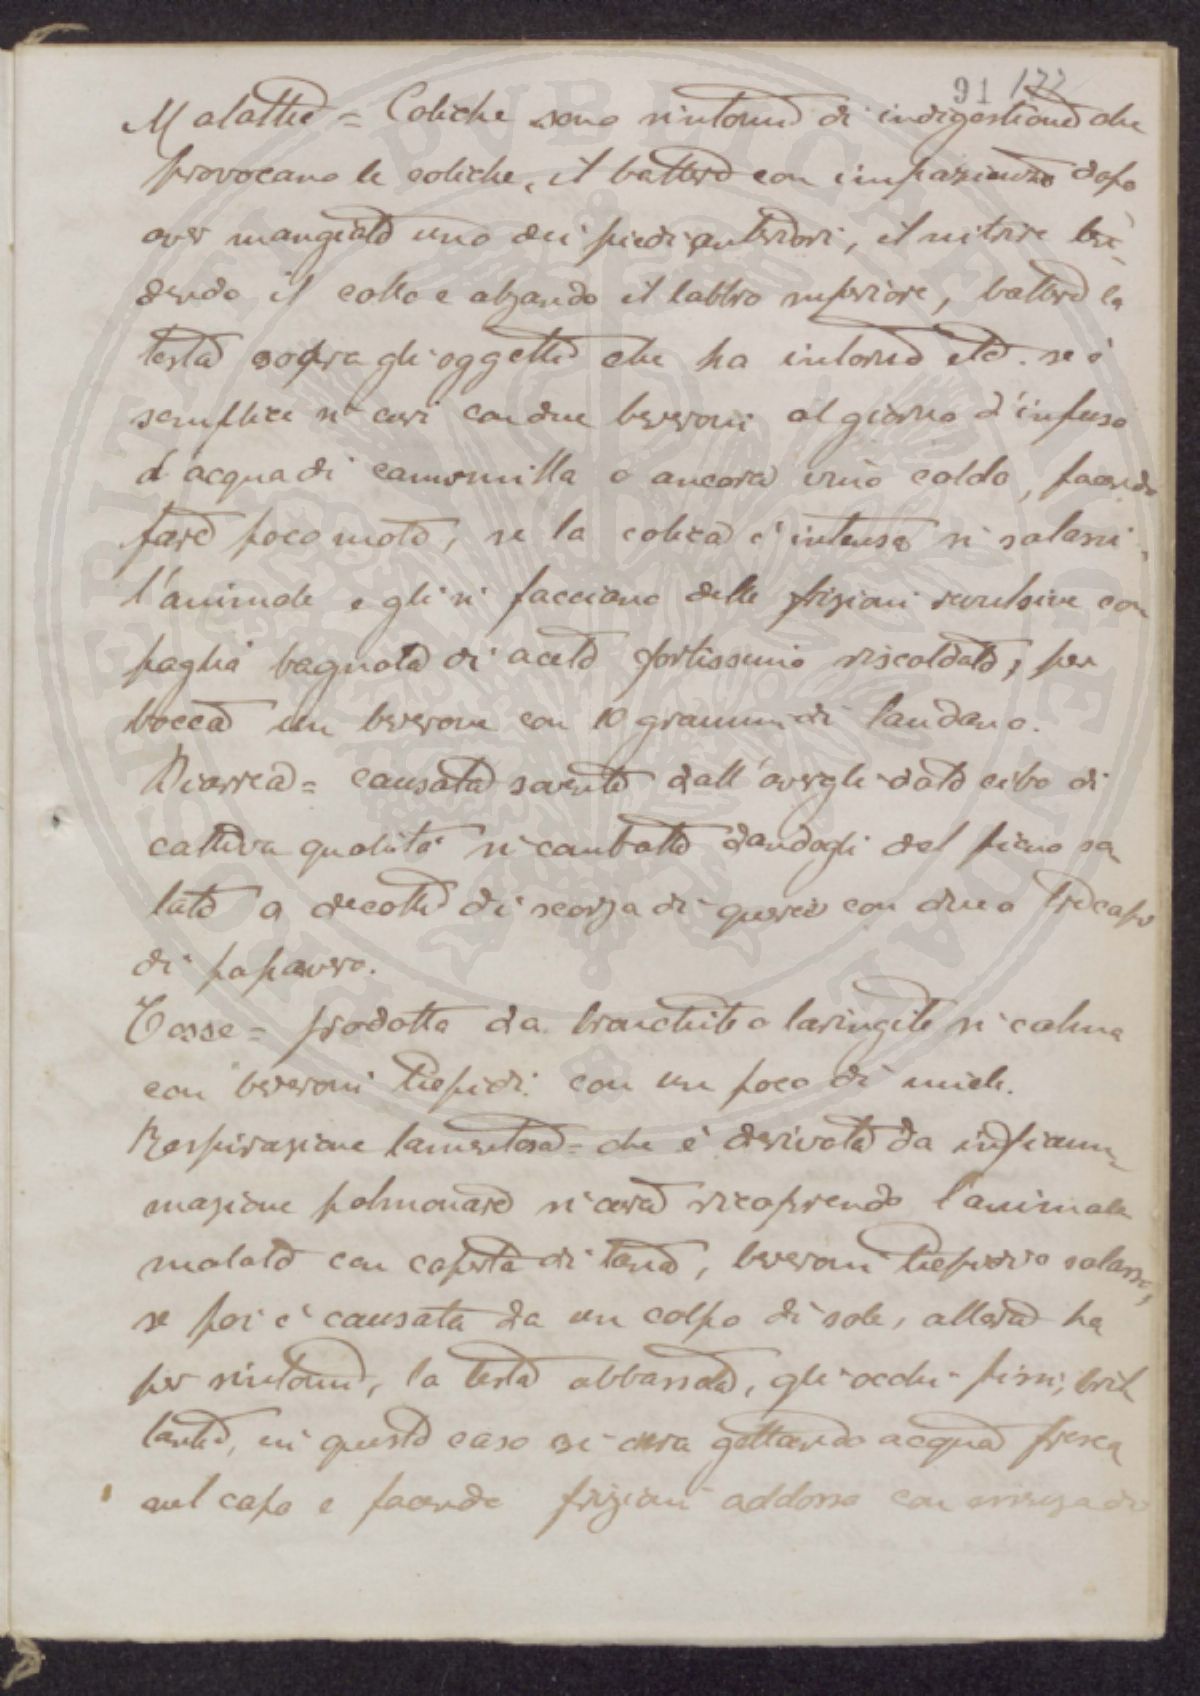 91 177
Malattie = Coliche sono sintomi di indigestione che
provocano le coliche, il battere con impazienza dopo
aver mangiato uno dei piedi anteriori, il nitrire
dendo il collo e alzando il labbro superiore, battere la
testa sopra gli oggetti che ha intorno etc. se è
semplice si curi con due beveroni al giorno d'infuso
d'acqua di camomilla o ancora vino caldo, facendo
fare poco moto, se la colica è intensa si salassi
l'animale e gli si facciano delle frizioni revulsive con
paglia bagnata di aceto fortissimo riscaldato, per
bocca un beverone con 10 grammi di laudano.
Diarrea = causata sovente dall'avergli dato cibo di
cattiva qualità si combatte dandogli del fieno sa
lato o decotti di scorza di quercia con due o tre capi
di papavero.
Tosse = prodotta da bronchite o laringite si calma
con beveroni tiepidi con un poco di miele.
Respirazione lamentosa = che è derivata da infiam-
mazione polmonare si cura ricoprendo l'animale
malato con coperta di lana, beveroni tiepidi o salassi,
se poi è causata da un colpo di sole, allora ha
per sintomi, la testa abbassata, gli occhi fissi, bril
lanti, in questo caso si cura gettando acqua fresca
sul capo e facendo frizioni addosso con essenza di